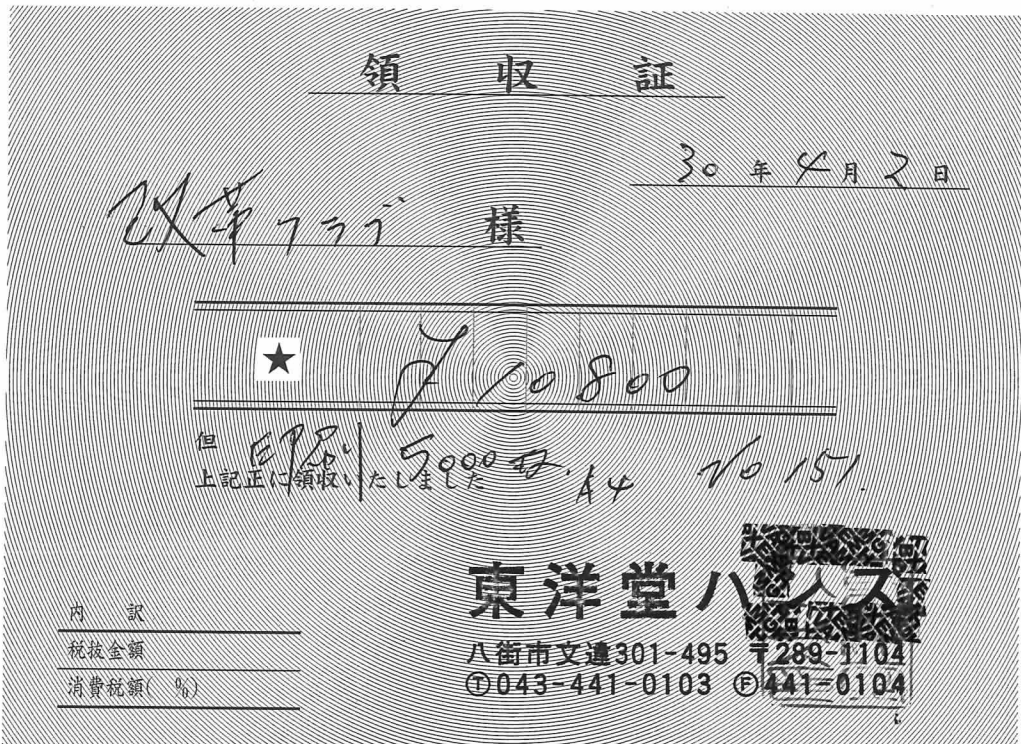 領収証
30年4月2日
改革クラブ 様
★ ¥10800
但 印刷 5000枚. A4 No 151.
上記正に領収いたしました
東洋堂ハンズ
八街市文違301-495 〒289-1104
Ⓣ043-441-0103 Ⓕ441-0104
内訳
税抜金額
消費税額( %)